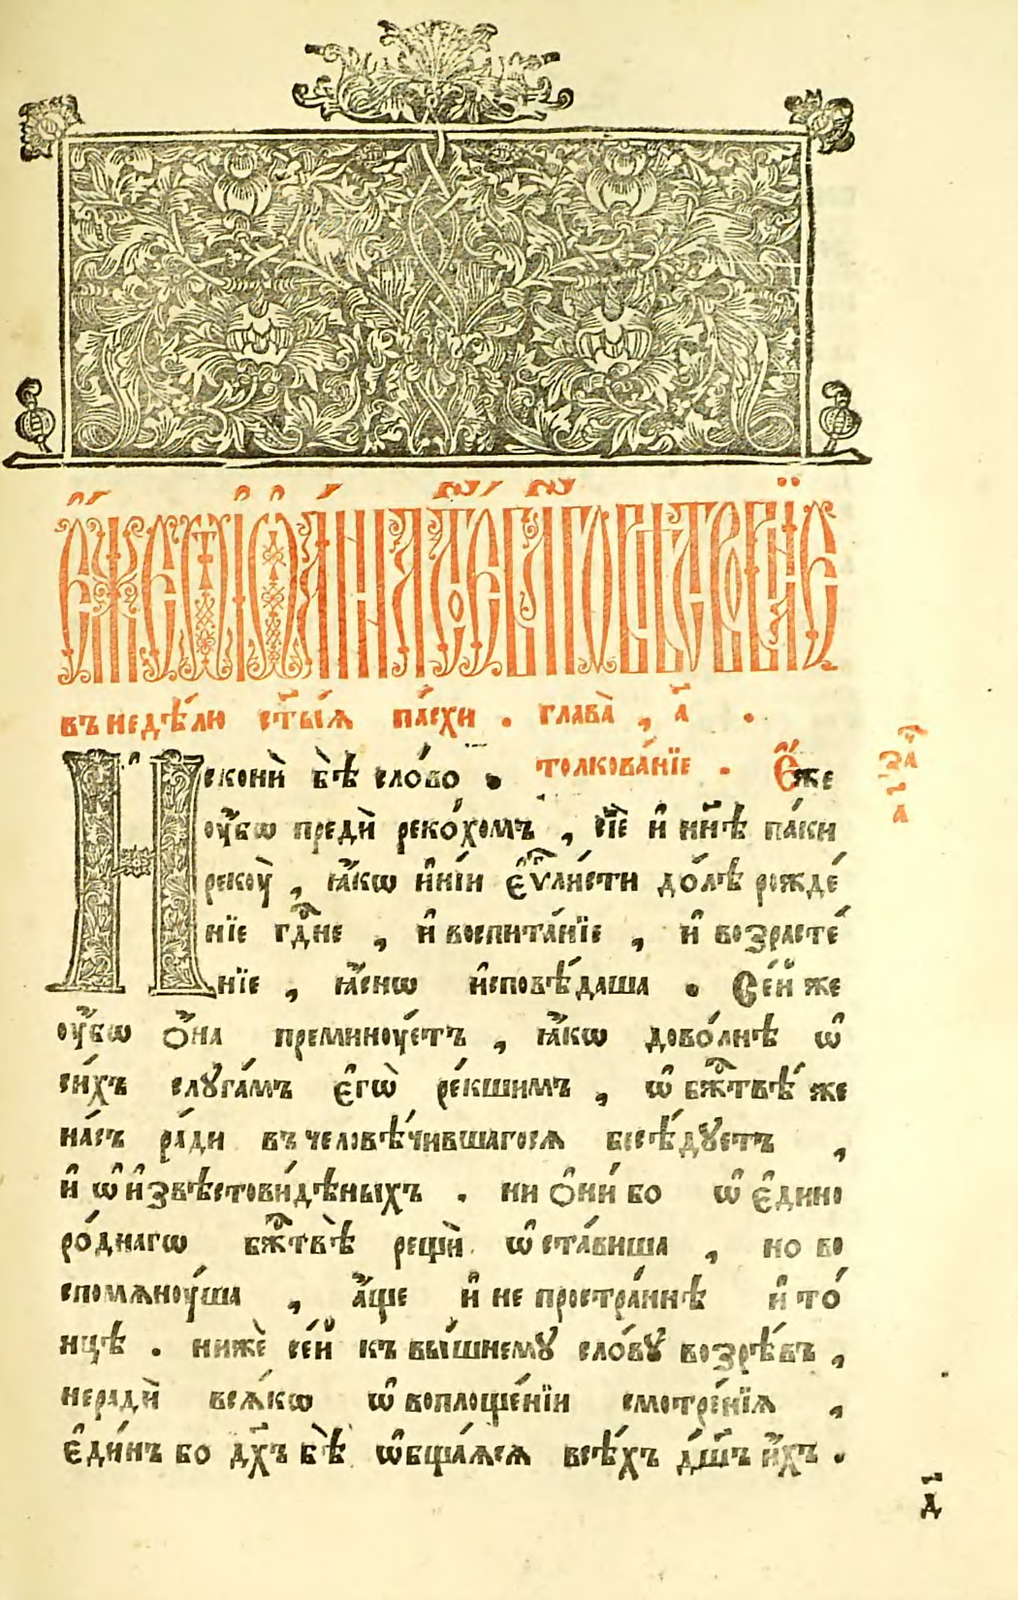 Е҆́же ѿ і҆ѡа́нна ст҃а́гѡ е҆ѵⷢ҇лїе
въ недѣ́лю ст҃ы́ѧ па́схи . глава̀ , а҃ .
Исконѝ бѣ̀ сло́во . толкова́нїе . Е҆́же
оу҆́бѡ предѝ реко́хомъ , сїѐ и҆ нн҃ѣ па́ки
рекꙋ̀ , ꙗ҆́кѡ и҆ні́и є҆ѵⷢ҇ли́сти до́лѣ рожде́
нїе гдⷭ҇не , и҆ воспита́нїе , и҆ возрасте́
нїе , ꙗ҆́снѡ и҆сповѣ́даша . Се́й же
оу҆́бѡ ѻ҆́на преминꙋ́етъ , ꙗ҆́кѡ дово́лнѣ ѡ҆
си́хъ слꙋга́мъ є҆гѡ̀ ре́кшимъ , ѡ҆ бж҃твѣ́ же
на́съ ра́ди въчеловѣ́чившагосѧ бесѣ́дꙋетъ ,
и҆ ѡ҆ и҆звѣ́стови́дѣныхъ . ни ѻ҆ни́ бо ѡ҆ є҆дино
ро́днагѡ бж҃твѣ̀ рещѝ ѡ҆ста́виша , но во
спомѧнꙋ́ша , а҆́ще и҆ не простра́ннѣ и҆ то́
нцѣ . нижѐ се́й къ вы́шнемꙋ сло́вꙋ возрѣ́въ ,
нерадѝ всѧ́кѡ ѡ҆ воплоще́нїи смотре́нїѧ ,
є҆ди́нъ бо дх҃ъ бѣ̀ ѡ҆бща́ѧсѧ всѣ́хъ дш҃ъ и҆́хъ .
зач
а҃
д҃